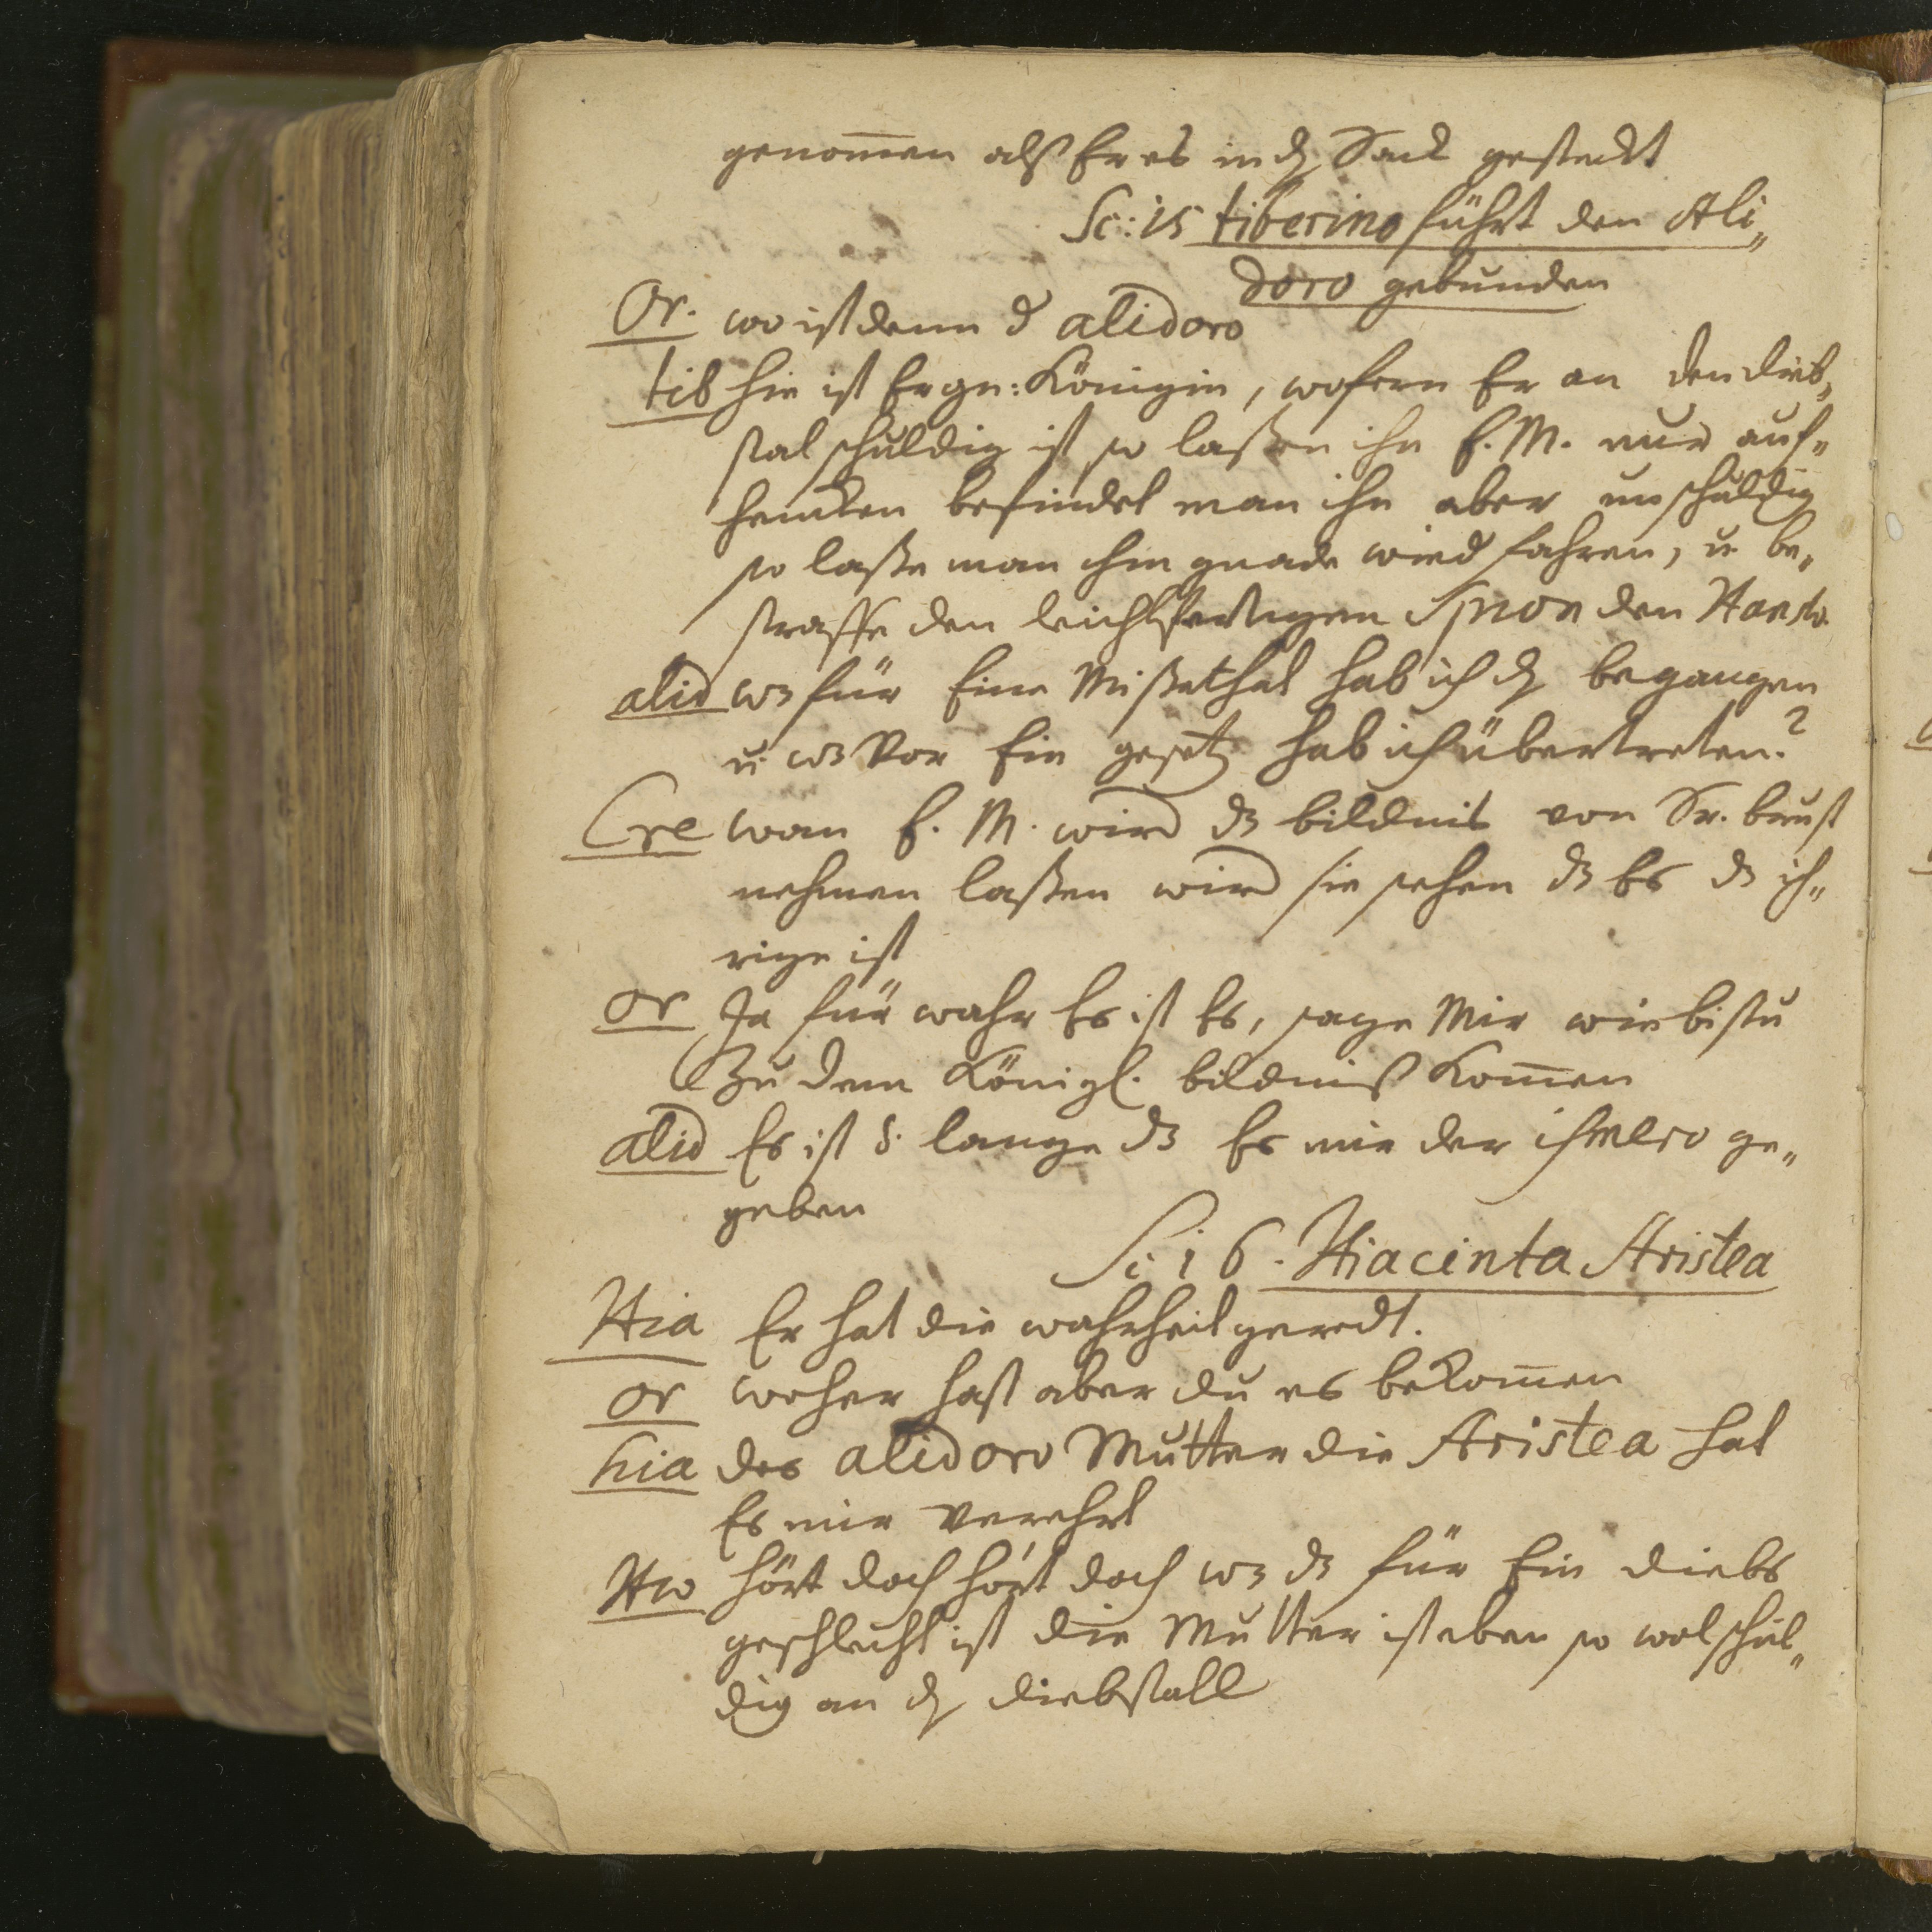 genom̄en alß Er es in dz Sack gesteckt
Sc: 15 tiberino führt den Ali„
doro gebunden
Or. wo ist denn d alidoro
tib hie ist Er gn: Königin, wofern Er an den dieb„
stal schuldig ist so laßen ihn E. M. nur auf„
hencken befindet man ihn aber unschuldig
so laße man ihm gnade wied fahren, u. be„
straffe den leichtfertigen den
alid wz für Eine Mißethat hab ich dz begangen
u. wz Vor Ein gesetz hab ich übertreten?
Cre wan E. M. wird dz bildnis von Sr. brust
nehmen laßen wird sie sehen dz Es dz ih„
rige ist
or Ja für wahr Es ist Es, sage Mir wie bistu
Zu dem Königl. bildniß Kom̄en
alid Es ist lange dz Es mir der ismero ge„
geben
Sc: 16. Hiacinta Aristea
Hia Er hat die wahrheit geredt.
or woher hast aber du es bekom̄en
hia des alidoro Mutter die Aristea hat
Es mir verehrt
hört doch hört doch wz dz für Ein diebs
geschlecht ist die Mutter ist eben so wol schul„
dig an dz diebstall